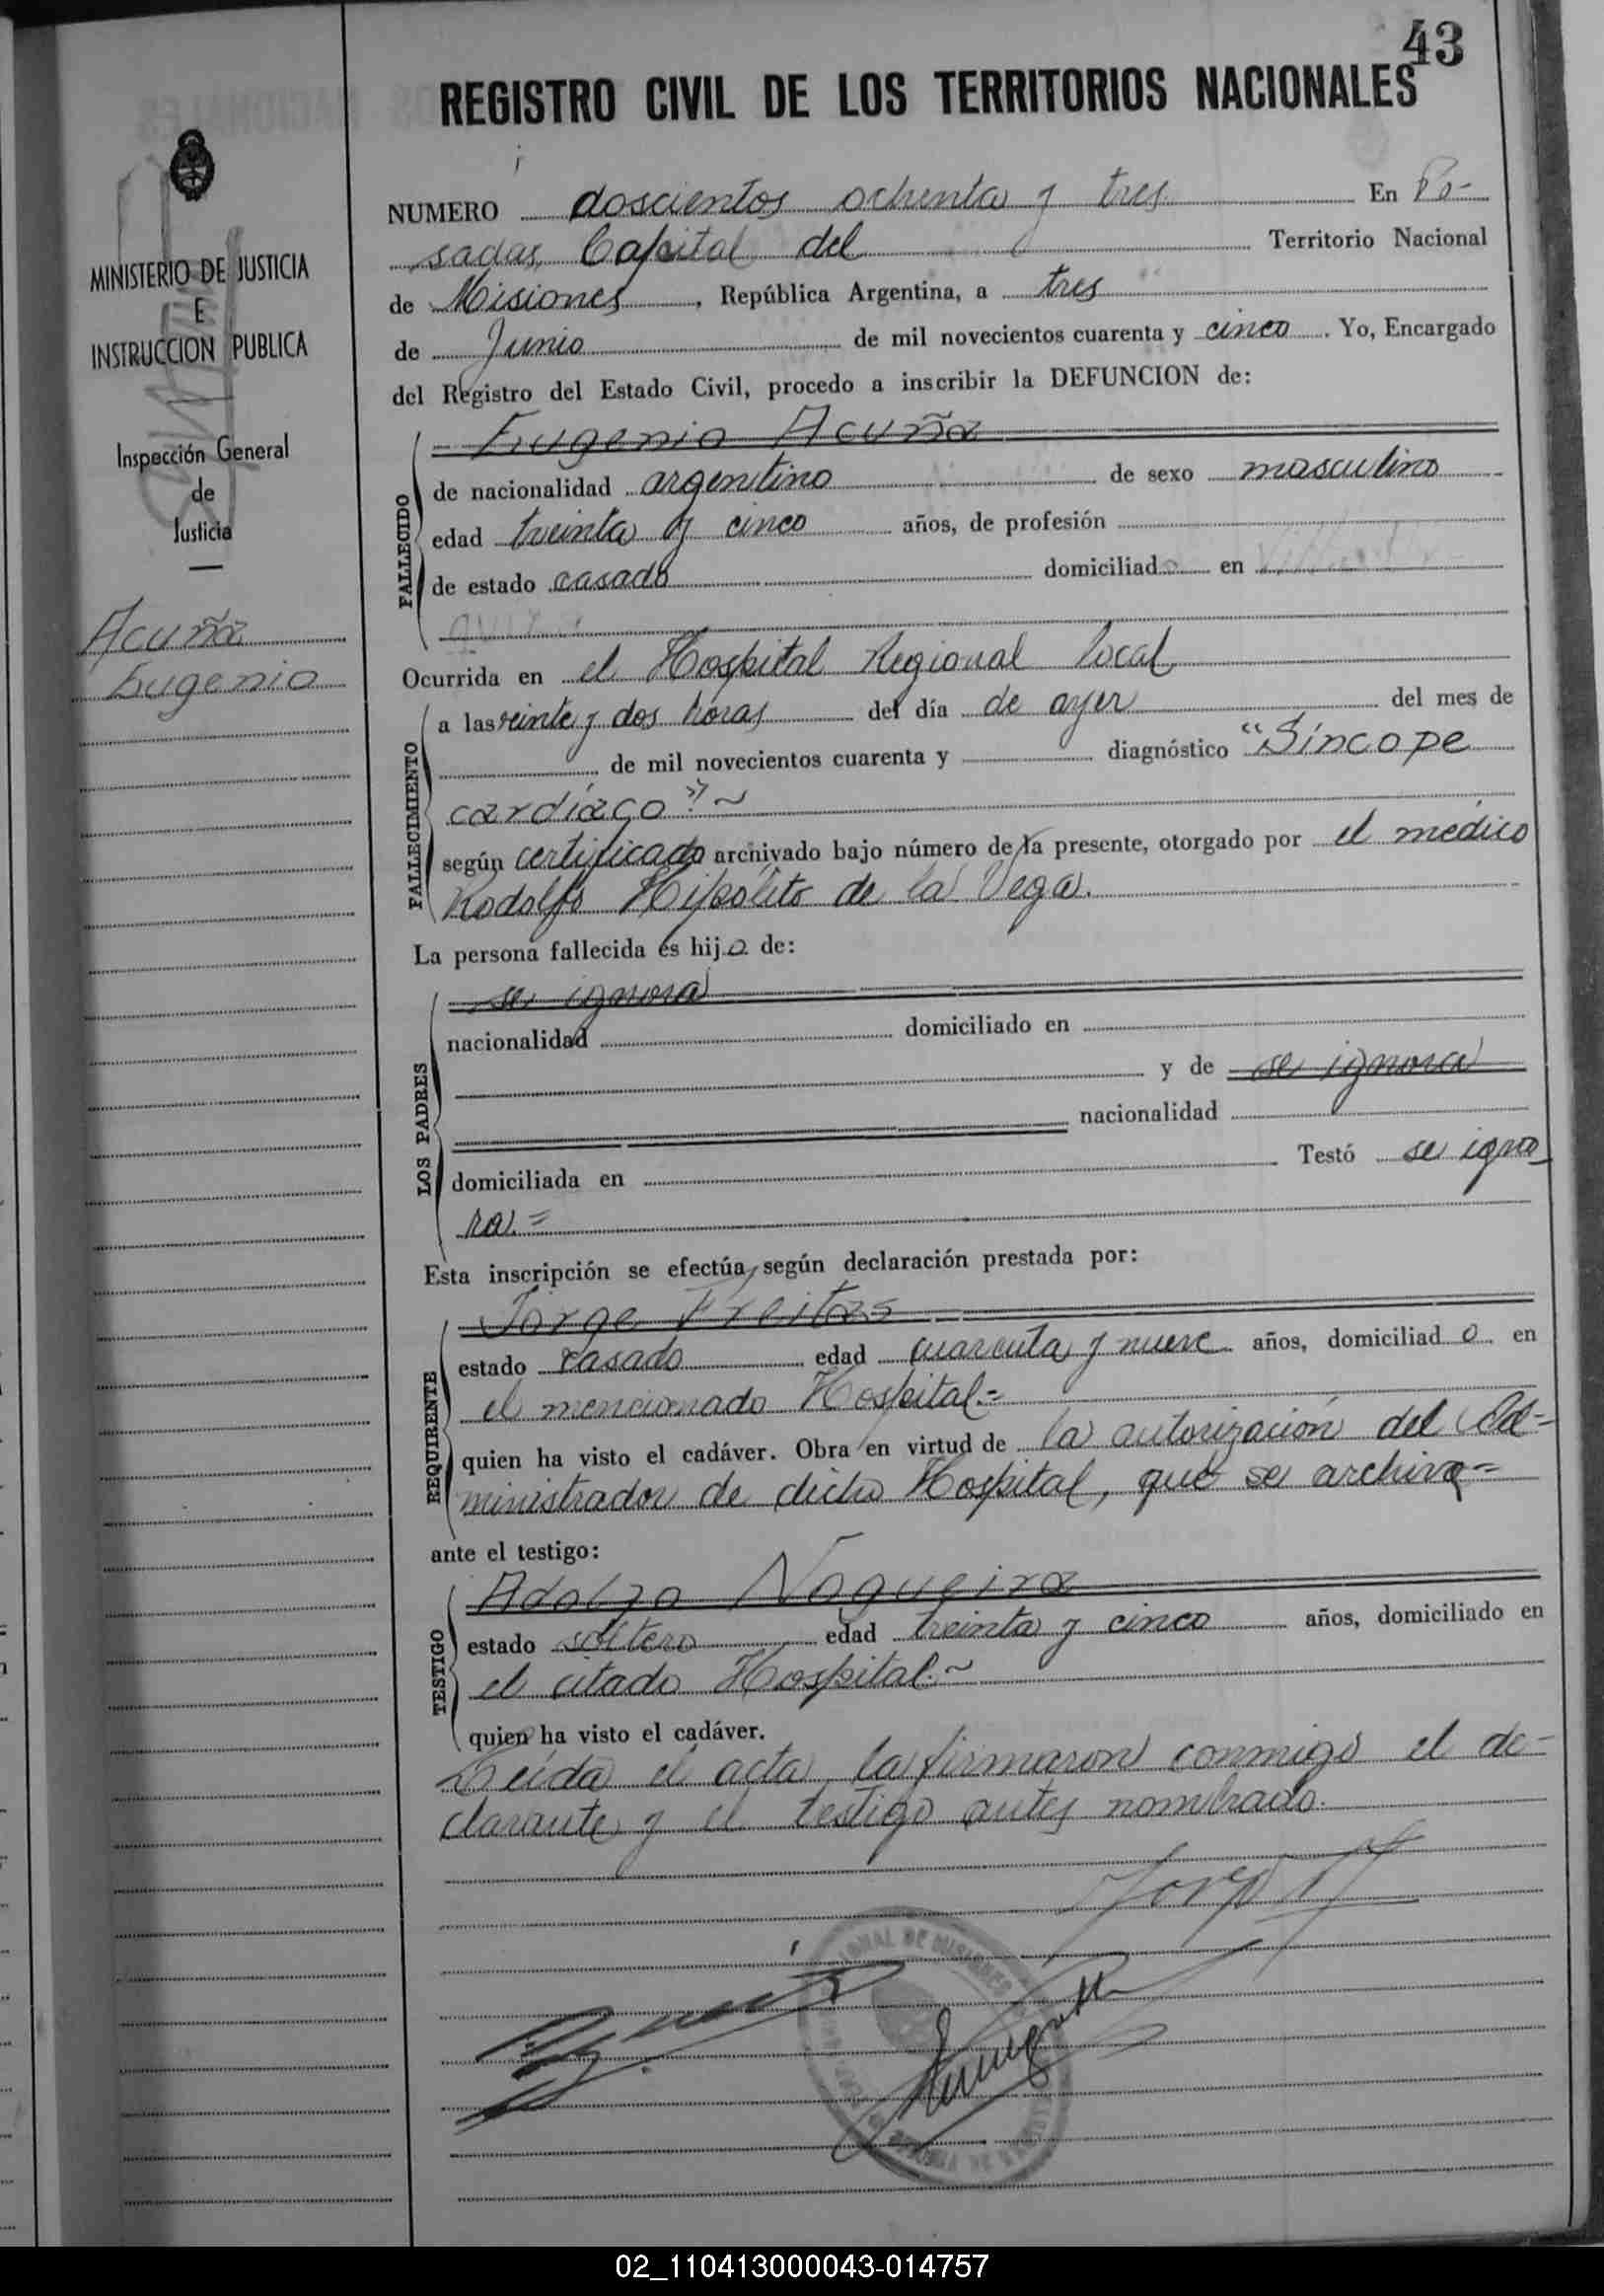 43
REGISTRO CIVIL DE LOS TERRITORIOS NACIONALES
MINISTERIO DE JUSTICIA
E
INSTRUCCION PUBLICA
Inspección General
de
Justicia
Acuña
Eugenio
NUMERO doscientos ochenta y tres En Po-
sadas, Capital del Territorio Nacional
de Misiones, República Argentina, a tres
de Junio de mil novecientos cuarenta y cinco. Yo, Encargado
del Registro del Estado Civil, procedo a inscribir la DEFUNCION de:
Eugenio Acuña
FALLECIDO
de nacionalidad argentino de sexo masculino
edad treinta y cinco años, de profesión
de estado casado domiciliado en
Ocurrida en el Hospital Regional local
FALLECIMIENTO
a las veinte y dos horas del día de ayer del mes de
de mil novecientos cuarenta y diagnóstico "Síncope
cardíaco" ~
según certificado archivado bajo número de la presente, otorgado por el médico
Rodolfo Hipólito de la Vega.
La persona fallecida es hijo de:
LOS PADRES
se ignora
nacionalidad domiciliado en
y de se ignora
nacionalidad
domiciliada en Testó se igno-
ra.=
Esta inscripción se efectúa, según declaración prestada por:
REQUIRENTE
Jorge Freitas
estado casado edad cuarenta y nueve años, domiciliado en
el mencionado Hospital.=
quien ha visto el cadáver. Obra en virtud de la autorización del Ad=
ministrador de dicho Hospital, que se archiva=
ante el testigo:
TESTIGO
Adolfo Nogueira
estado soltero edad treinta y cinco años, domiciliado en
el citado Hospital.~
quien ha visto el cadáver.
Leída el acta, la firmaron conmigo el de-
clarante y el testigo antes nombrado.
02_110413000043-014757